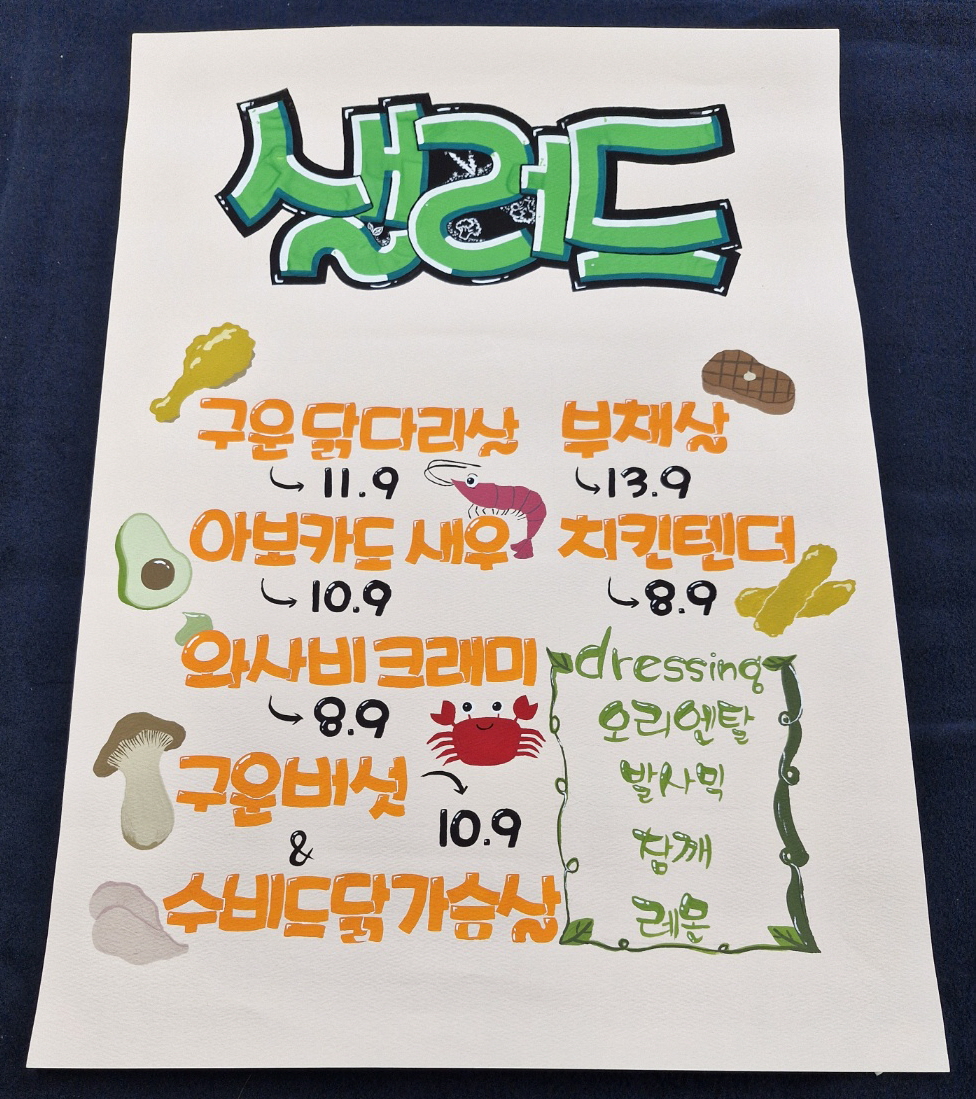 샐러드
구운 닭다리살
11.9
부채살
13.9
아보카도 새우
10.9
치킨텐더
8.9
와사비 크래미
8.9
구운버섯
&
수비드닭가슴살
10.9
dressing
오리엔탈
발사믹
참깨
레몬